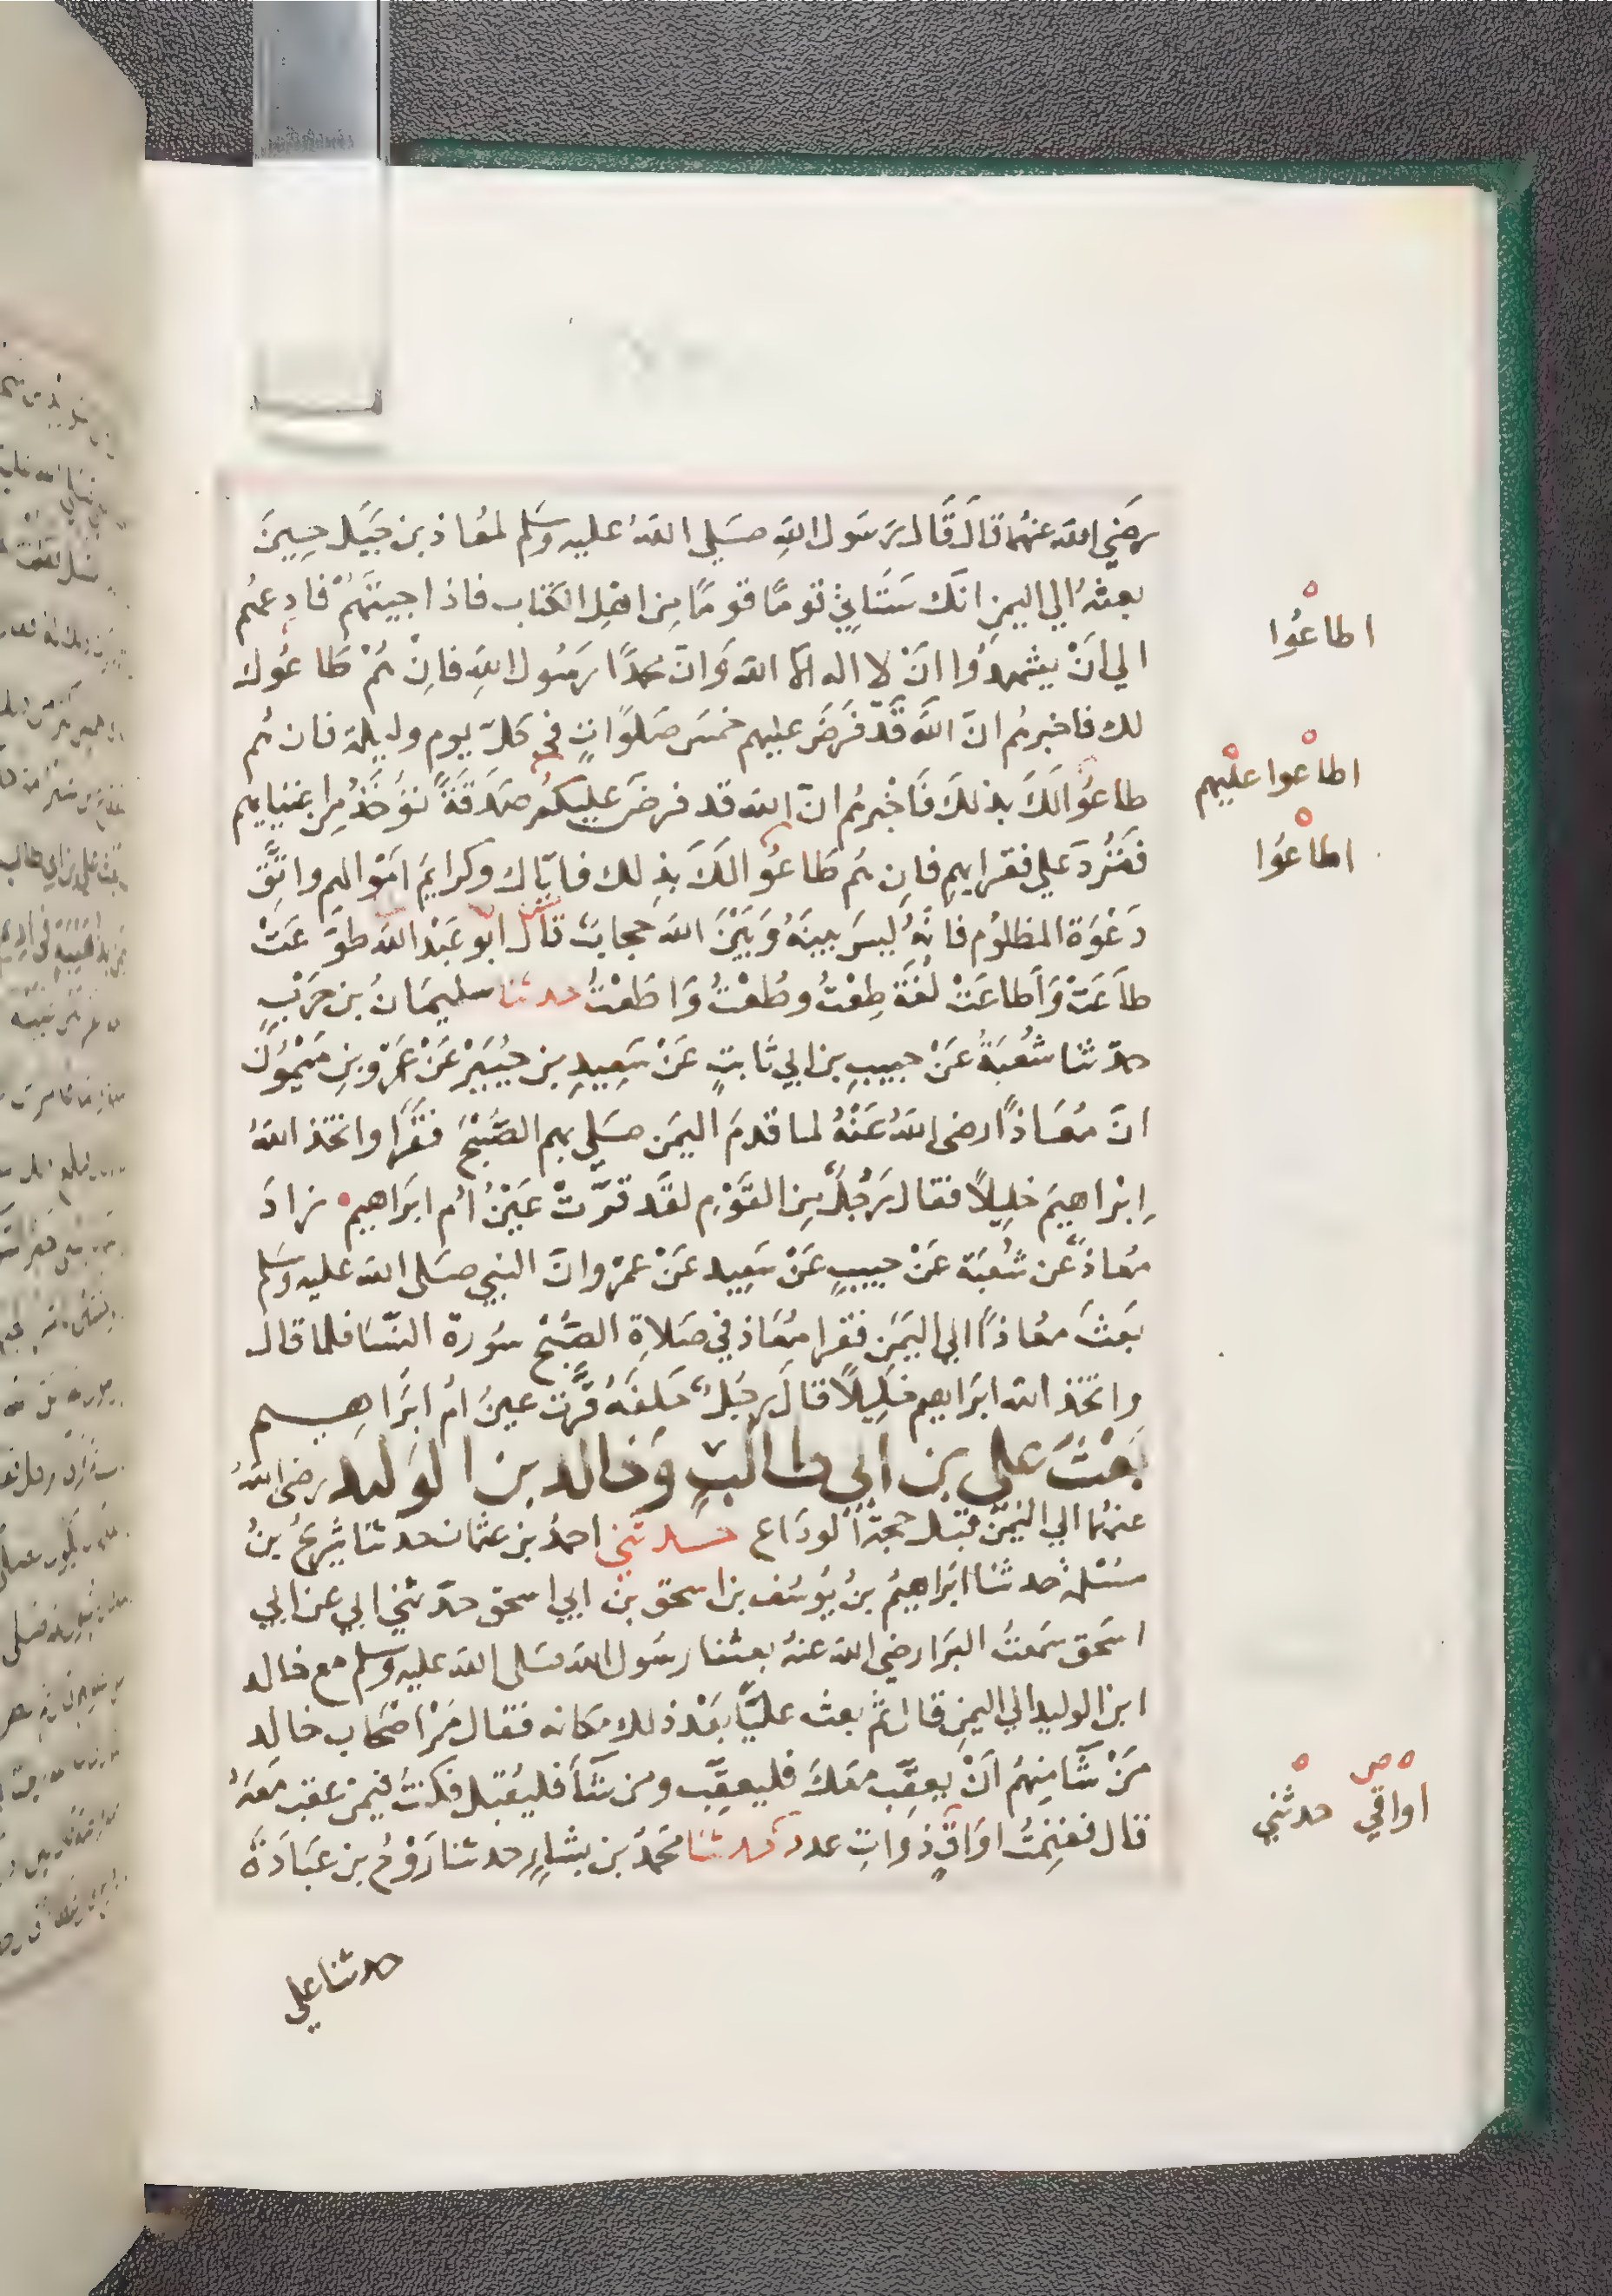 رضي الله عنهما قال قال رسول الله صلي الله عليه وسلم لمعاذ بن جبل حين
بعثه الي اليمن انك ستاتي قوما قوما من اهل الكتاب فاذا جيتهم فادعهم
الي ان يشهدوا ان لا اله الا الله وان محمدا رسول الله فان هم طاعوك
لك فاخبرهم ان الله قد فرض عليهم خمس صلوات في كل يوم وليلة فان هم
طاعوا لك بذلك فاخبرهم ان الله قد فرض عليكم صدقة تؤخذ من اغنيايهم
فترد علي فقرايهم فان هم طاعوا لك بذلك فاياك وكرايم اموالهم واتق
دعوة المظلوم فانه ليس بينه وبين الله حجاب قال ابو عبد الله طوعت
طاعت واطاعت لغة طعت وطعت واطعت حدثنا سليمان بن حرب
حدثنا شعبة عن حبيب بن ابي ثابت عن سعيد بن جبير عن عمرو بن ميمون
ان معاذا رضى الله عنه لما قدم اليمن صلي بهم الصبح فقرا واتخذ الله
ابراهيم خليلا فقال رجل من القوم لقد قرت عين ام ابراهيم زاد
معاذ عن شعبة عن حبيب عن سعيد عن عمرو ان النبي صلى الله عليه وسلم
بعث معاذا الي اليمن فقرا معاذ في صلاة الصبح سورة النسا فلما قال
واتخذ الله ابراهيم خليلا قال رجل خلفه قرت عين ام ابراهيم
بعث علي بن ابي طالب وخالد بن الوليد رضى الله
عنهما الي اليمن قبل حجة الوداع حدثني احمد بن عثمان حدثنا شريح بن
مسلمة حدثنا ابراهيم بن يوسف بن اسحق بن ابي اسحق حدثني ابي عن ابي
اسحق سمعت البرا رضي الله عنه بعثنا رسول الله صلى الله عليه وسلم مع خالد
ابن الوليد الي اليمن قال ثم بعث عليا بعد ذلك مكانه فقال مر اصحاب خالد
من شا منهم ان يعقب معك فليعقب ومن شا فليقبل فكنت فيمن عقب معه
قال فغنمت اواق ذوات عدد حدثنا محمد بن بشار حدثنا روح بن عبادة
حدثنا علي
اطاعوا
اطاعوا عليهم
اطاعوا
اواقي حدثني